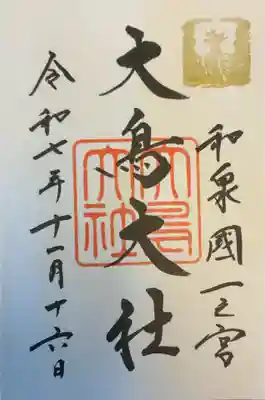 和泉國一之宮
大鳥大社
大鳥大社
令和七年十一月十六日